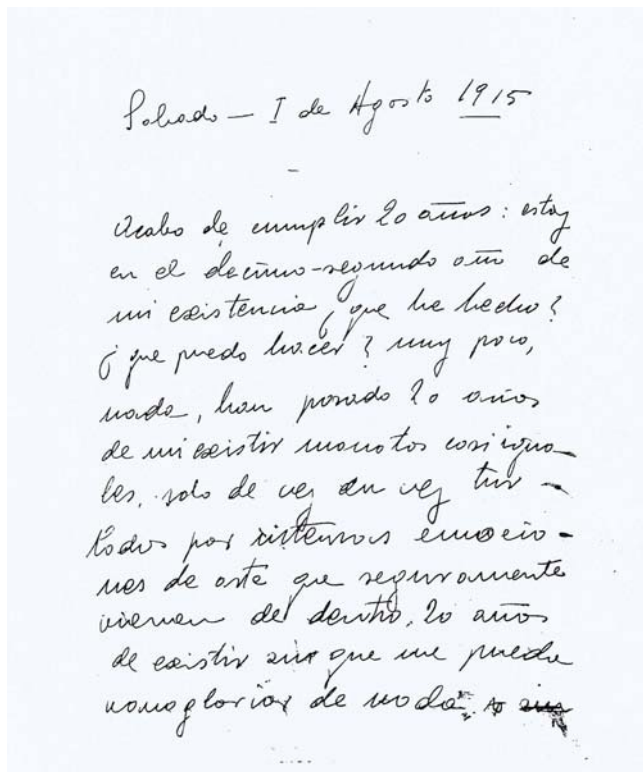 Sabado — I de Agosto 1915
Acabo de cumplir 20 años: estoy
en el decimo-segundo año de
mi existencia, que he hecho?
¿ que puedo hacer? muy poco,
nada, han pasado 20 años
de mi existir casi igua-
les, solo de vez en vez tur-
bados por intensas emocio-
nes de arte que seguramente
vienen de dentro. 20 años
de existir sin que me pueda
vanagloriar de nada